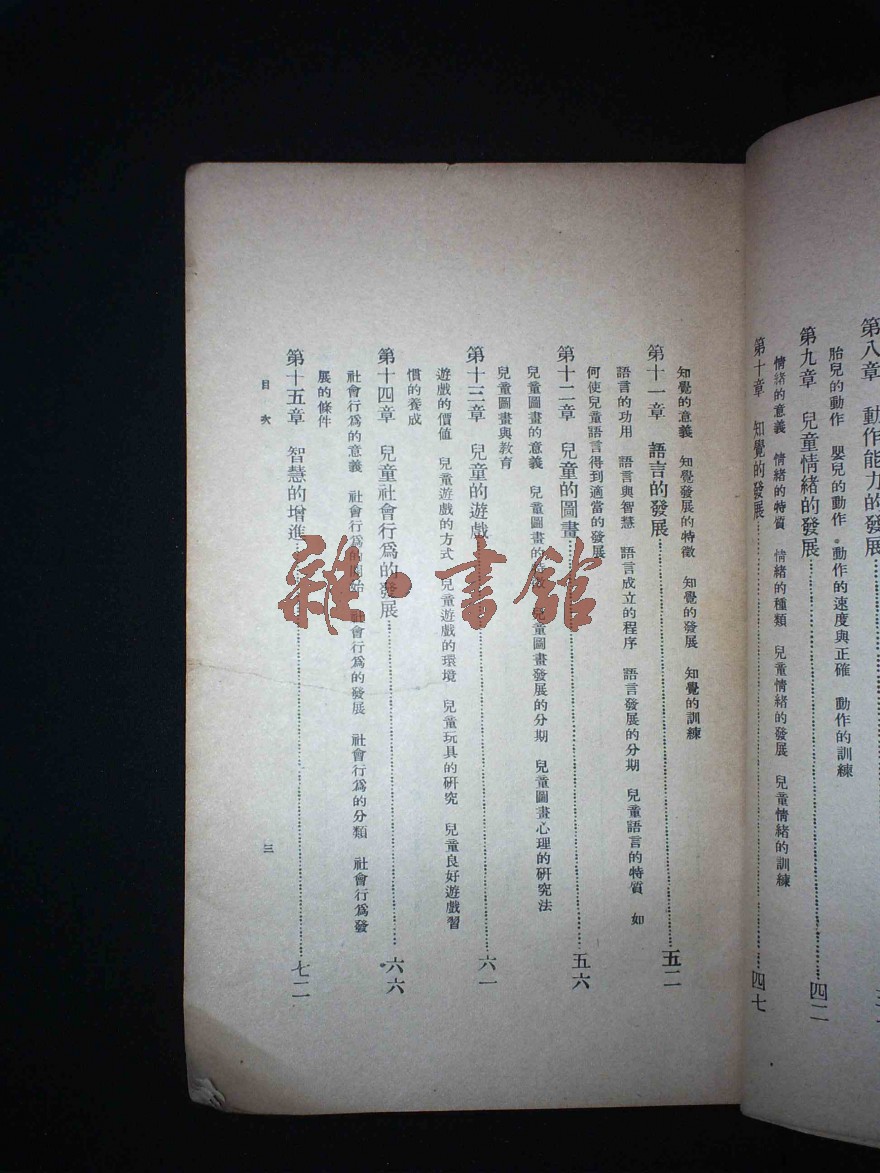 第八章 動作能力的發展
胎兒的動作 嬰兒的動作 動作的速度與正確 動作的訓練
第九章 兒童情緒的發展……四二
情緒的意義 情緒的特質 情緒的種類 兒童情緒的發展 兒童情緒的訓練
第十章 知覺的發展……四七
知覺的意義 知覺發展的特徵 知覺的發展 知覺的訓練
第十一章 語言的發展……五二
語言的功用 語言與智慧 語言成立的程序 語言發展的分期 兒童語言的特質 如
何使兒童語言得到適當的發展
第十二章 兒童的圖畫……五六
兒童圖畫的意義 兒童圖畫的特徵 兒童圖畫發展的分期 兒童圖畫心理的研究法
兒童圖畫與教育
第十三章 兒童的遊戲……六一
遊戲的價值 兒童遊戲的方式 兒童遊戲的環境 兒童玩具的研究 兒童良好遊戲習
慣的養成
第十四章 兒童社會行爲的發展……六六
社會行爲的意義 社會行爲的開始 社會行爲的發展 社會行爲的分類 社會行爲發
展的條件
第十五章 智慧的增進……七二
目次
三
雜·書館